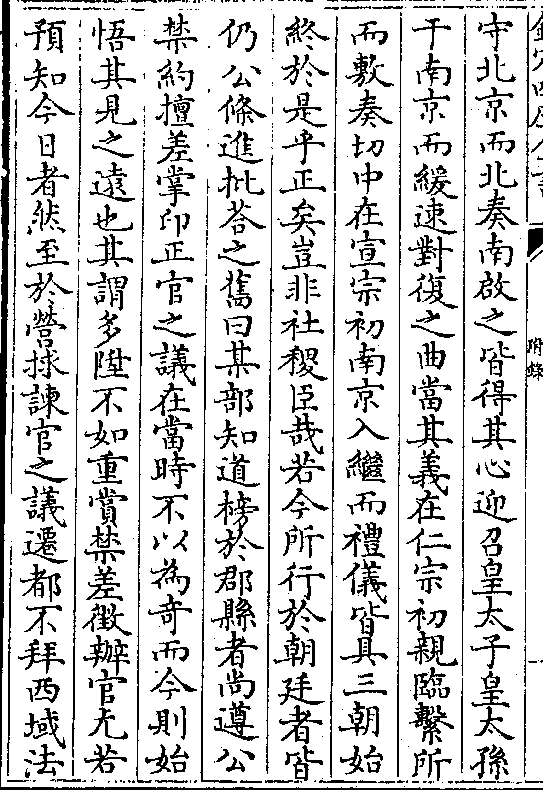 欽定四庫全書
附録
守北京而北奏南啟之皆得其心迎召皇太子皇太孫
于南京而緩速對復之曲當其義在仁宗初親臨繫所
而敷奏切中在宣宗初南京入繼而禮儀皆具三朝始
終於是乎正矣豈非社稷臣哉若今所行於朝廷者皆
仍公條進批荅之舊曰某部知道榜於郡縣者尚遵公
禁約擅差掌印正官之議在當時不以為竒而今則始
悟其見之遠也其謂多陞不如重賞禁差徵辦官尤若
預知今日者然至於營捄諫官之議遷都不拜西域法